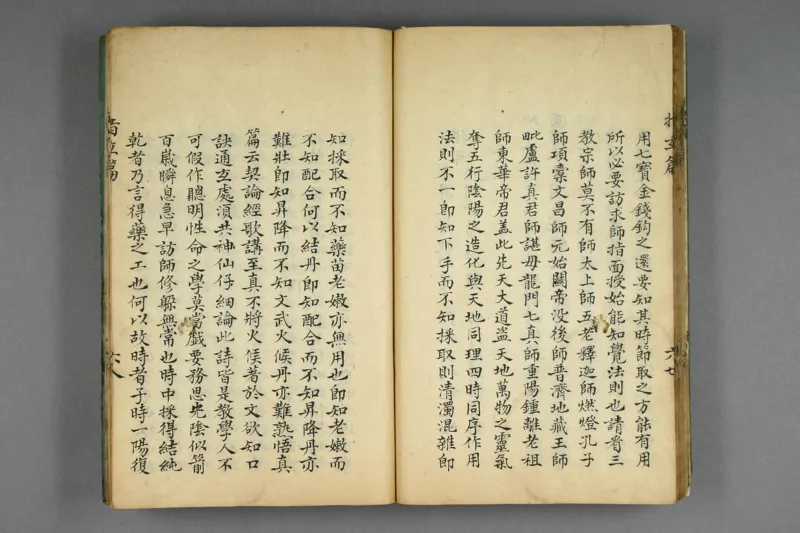 用七寳金錢鈎之還要知其時節取之方能有用
所以必要訪求師指面授始能知覺法則也請看三
教宗師莫不有師太上師五老釋迦師燃燈孔子
師項橐文昌師元始關帝没後師普濟地藏王師
毗盧許真君師諶母龍門七真師重陽鍾離老祖
師東華帝君盖此先天大道盜天地萬物之靈氣
奪五行陰陽之造化與天地同理四時同序作用
法則不一即知下手而不知採取則清濁混雜即
六七
知採取而不知藥苗老嫩亦無用也即知老嫩而
不知配合何以結丹即知配合而不知昇降丹亦
難壯即知昇降而不知文武火候丹亦難熟悟真
篇云契論經歌講至真不將火候著於文欲知口
訣通玄處須共神仙仔細論此詩皆是教學人不
可假作聰明性命之學莫當戲要務思光陰似箭
百歲瞬息急早訪師修躲無常也時中採得結純
乾者乃言得藥之工也何以故時者子時一陽復
六八